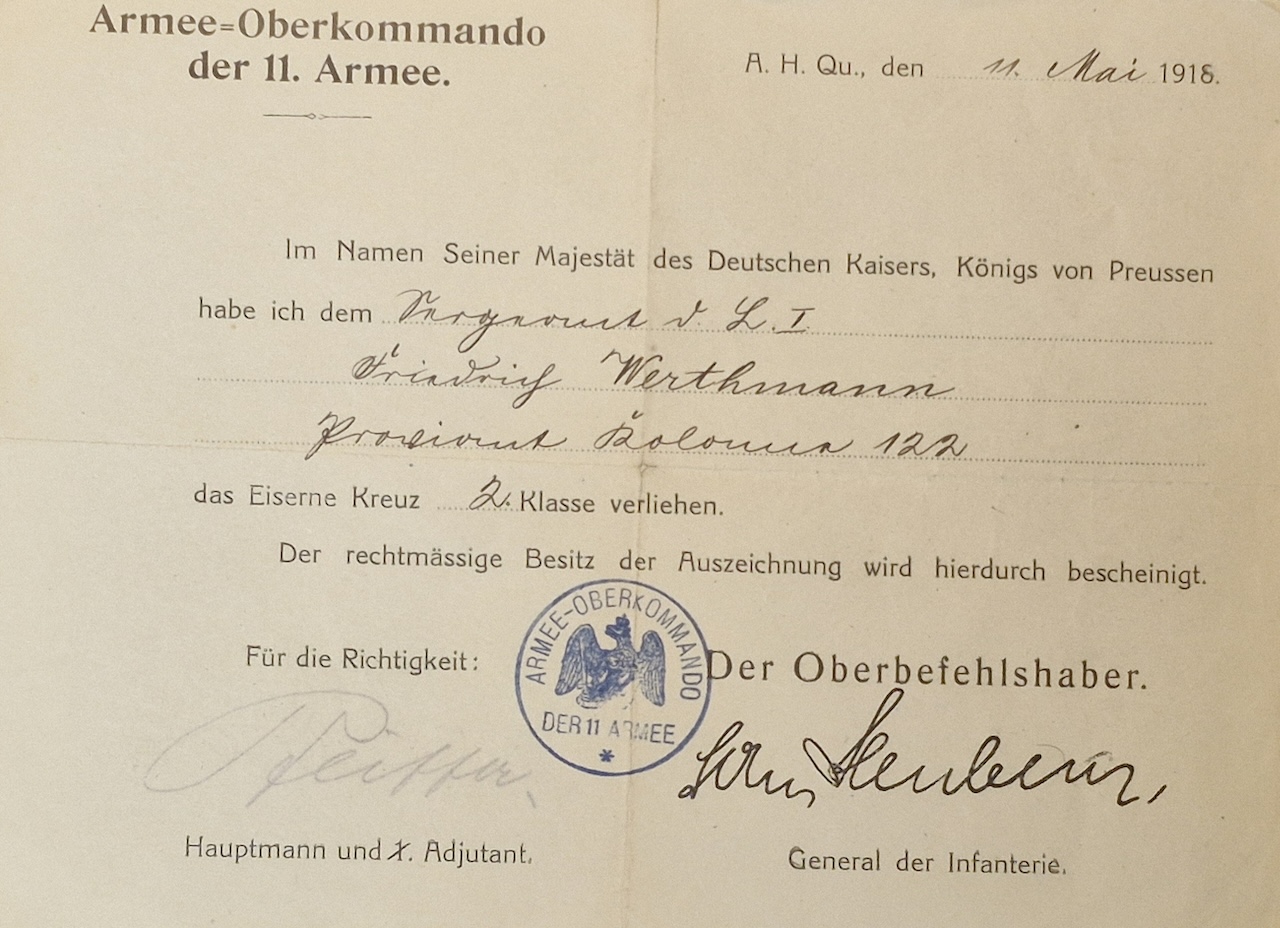 Armee=Oberkommando
der 11. Armee.
A. H. Qu., den 11. Mai 1918.
Im Namen Seiner Majestät des Deutschen Kaisers, Königs von Preussen
habe ich dem Sergeant d. L. I
Friedrich Werthmann
Proviant Kolonne 122
das Eiserne Kreuz 2. Klasse verliehen.
Der rechtmässige Besitz der Auszeichnung wird hierdurch bescheinigt.
ARMEE-OBERKOMMANDO
DER 11 ARMEE
*
Für die Richtigkeit:
Der Oberbefehlshaber.
von Steuben,
Hauptmann und Adjutant.
General der Infanterie.